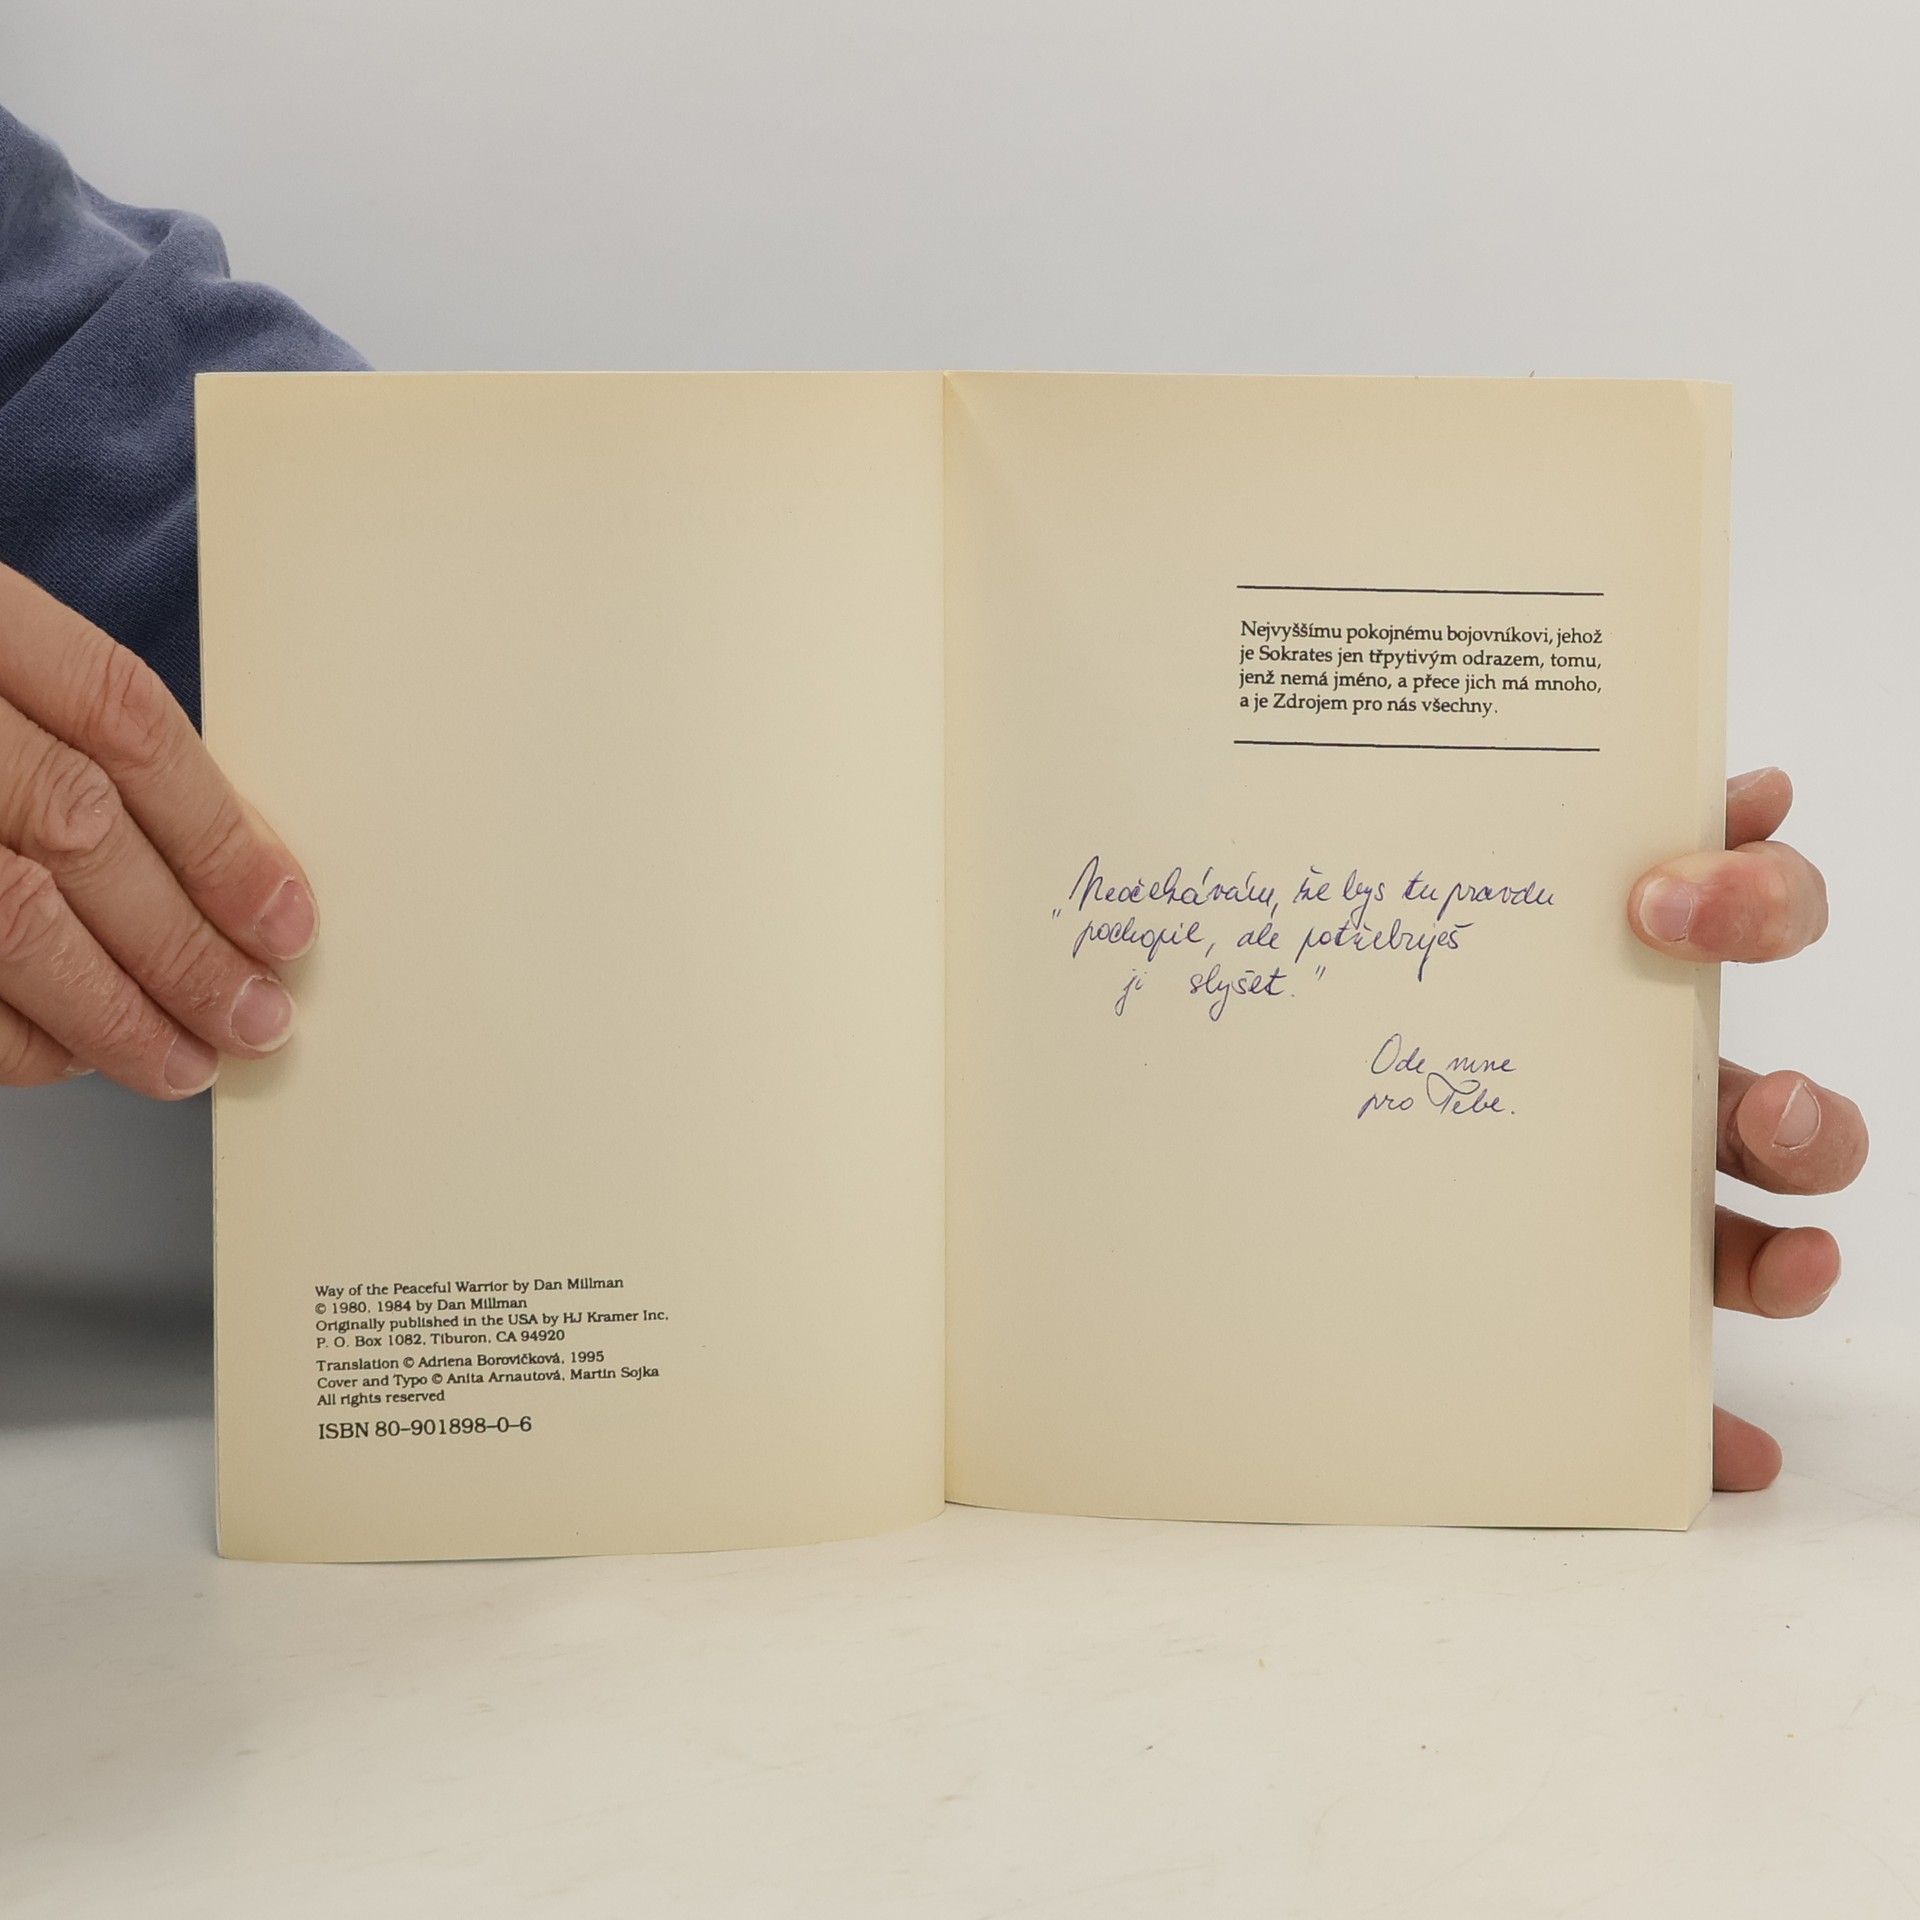 Way of the Peaceful Warrior by Dan Millman
© 1980, 1984 by Dan Millman
Originally published in the USA by HJ Kramer Inc,
P. O. Box 1082, Tiburon, CA 94920
Translation © Adriena Borovičková, 1995
Cover and Typo © Anita Arnautová, Martin Sojka
All rights reserved
ISBN 80–901898–0–6
Nejvyššímu pokojnému bojovníkovi, jehož
je Sokrates jen třpytivým odrazem, tomu,
jenž nemá jméno, a přece jich má mnoho,
a je Zdrojem pro nás všechny.
„Neočekávám, že bys tu pravdu
pochopil, ale potřebuješ
ji slyšet."
Ode mne
pro Tebe.